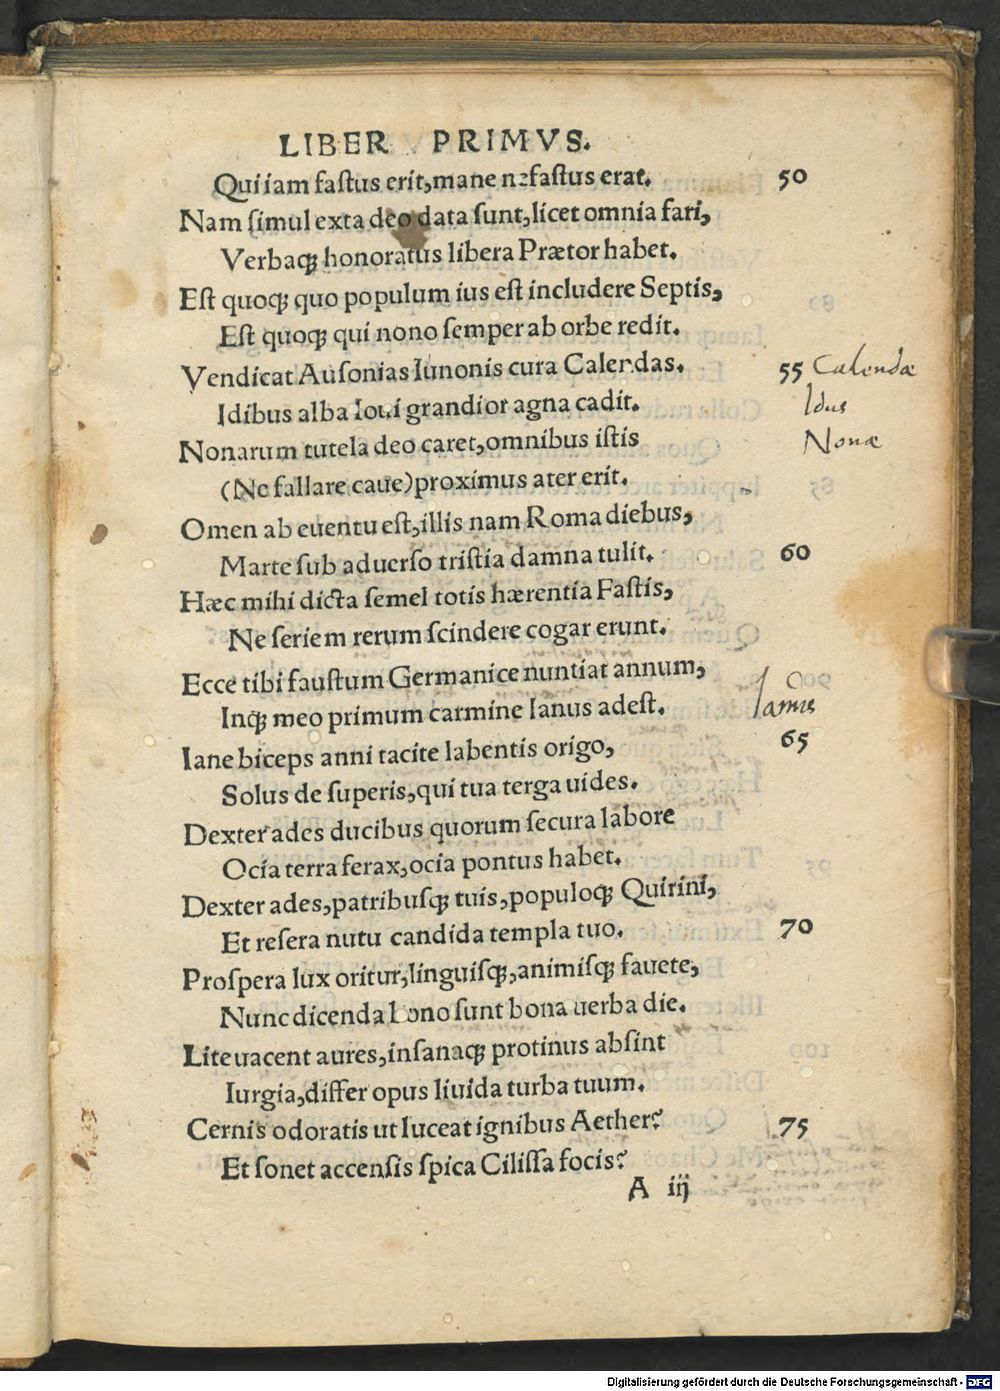 LIBER PRIMVS.
Qui iam fastus erit, mane nefastus erat. 50
Nam simul exta deo data sunt, licet omnia fari,
Verbaq; honoratus libera Prætor habet.
Est quoq; quo populum ius est includere Septis,
Est quoq; qui nono semper ab orbe redit.
Vendicat Ausonias Iunonis cura Calendas. 55 Calendæ
Idibus alba Ioui grandior agna cadit. Idus
Nonarum tutela deo caret, omnibus istis Nonæ
(Ne fallare caue) proximus ater erit.
Omen ab euentu est, illis nam Roma diebus,
Marte sub aduerso tristia damna tulit. 60
Hæc mihi dicta semel totis hærentia Fastis,
Ne seriem rerum scindere cogar erunt.
Ecce tibi faustum Germanice nuntiat annum,
Inq; meo primum carmine Ianus adest. Ianus
Iane biceps anni tacite labentis origo, 65
Solus de superis, qui tua terga uides.
Dexter ades ducibus quorum secura labore
Ocia terra ferax, ocia pontus habet.
Dexter ades, patribusq; tuis, populoq; Quirini,
Et resera nutu candida templa tuo. 70
Prospera lux oritur, linguisq;, animisq; fauete,
Nunc dicenda bono sunt bona uerba die.
Lite uacent aures, insanaq; protinus absint
Iurgia, differ opus liuida turba tuum.
Cernis odoratis ut luceat ignibus Aether? 75
Et sonet accensis spica Cilissa focis?
A iij
Digitalisierung gefördert durch die Deutsche Forschungsgemeinschaft - DFG